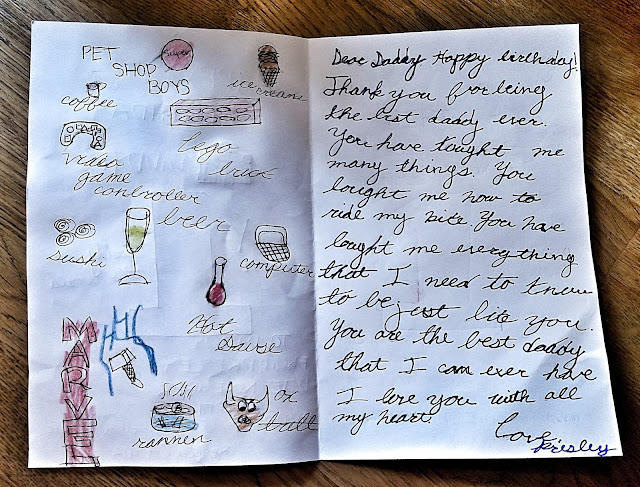 PET
SHOP
BOYS
Super
ice cream
coffee
lego
brick
video
game
controller
beer
sushi
computer
Hot
Sause
MARVEL
rammen
ox
Dear Daddy Happy birthday!
Thank you for being
the best daddy ever.
You have tought me
many things. You
tought me how to
ride my bike You have
tought me everything
that I need to know
to be just like you.
You are the best daddy
that I can ever have
I love you with all
my heart.
Love,
Presley